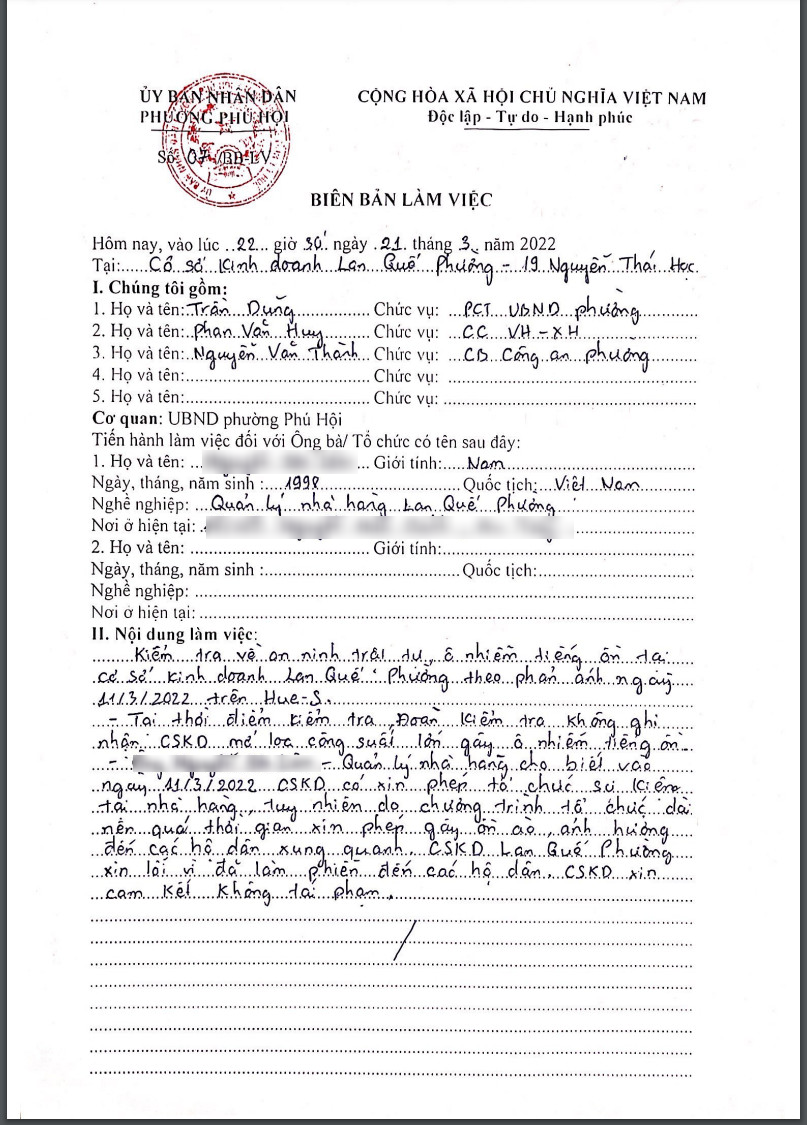 ỦY BAN NHÂN DÂN
PHƯỜNG PHÚ HỘI
CỘNG HÒA XÃ HỘI CHỦ NGHĨA VIỆT NAM
Độc lập - Tự do - Hạnh phúc
Số: 07/BB-LV
BIÊN BẢN LÀM VIỆC
Hôm nay, vào lúc ..22... giờ 30. ngày .21. tháng 3. năm 2022
Tại:.....Cơ sở kinh doanh Lan Quế Phường - 19 Nguyễn Thái Học.
I. Chúng tôi gồm:
1. Họ và tên: Trần Dũng............ Chức vụ: PCT UBND phường
2. Họ và tên: Phan Văn Huy........ Chức vụ: CC VH-XH
3. Họ và tên: Nguyễn Văn Thành... Chức vụ: CB Công an phường
4. Họ và tên:.................... Chức vụ: ....................
5. Họ và tên:.................... Chức vụ: ....................
Cơ quan: UBND phường Phú Hội
Tiến hành làm việc đối với Ông bà/ Tổ chức có tên sau đây:
1. Họ và tên: ... Giới tính:.....Nam
Ngày, tháng, năm sinh :....1998.......... Quốc tịch:..Việt Nam
Nghề nghiệp:....Quản lý nhà hàng Lan Quế Phường
Nơi ở hiện tại:
2. Họ và tên: .................... Giới tính:....................
Ngày, tháng, năm sinh :.................... Quốc tịch:....................
Nghề nghiệp: ....................
Nơi ở hiện tại: ....................
II. Nội dung làm việc:
Kiểm tra về an ninh trật tự, ô nhiễm tiếng ồn tại
cơ sở kinh doanh Lan Quế Phường theo phản ánh ngày
11/3/2022 trên Hue-S.
- Tại thời điểm kiểm tra, Đoàn kiểm tra không ghi
nhận CSKD mở loa công suất lớn gây ô nhiễm tiếng ồn.
- - Quản lý nhà hàng cho biết vào
ngày 11/3/2022 CSKD có xin phép tổ chức sự kiện
tại nhà hàng, tuy nhiên do chương trình tổ chức dài
nên quá thời gian xin phép gây ồn ào, ảnh hưởng
đến các hộ dân xung quanh. CSKD Lan Quế Phường
xin lỗi vì đã làm phiền đến các hộ dân. CSKD xin
cam kết không tái phạm.